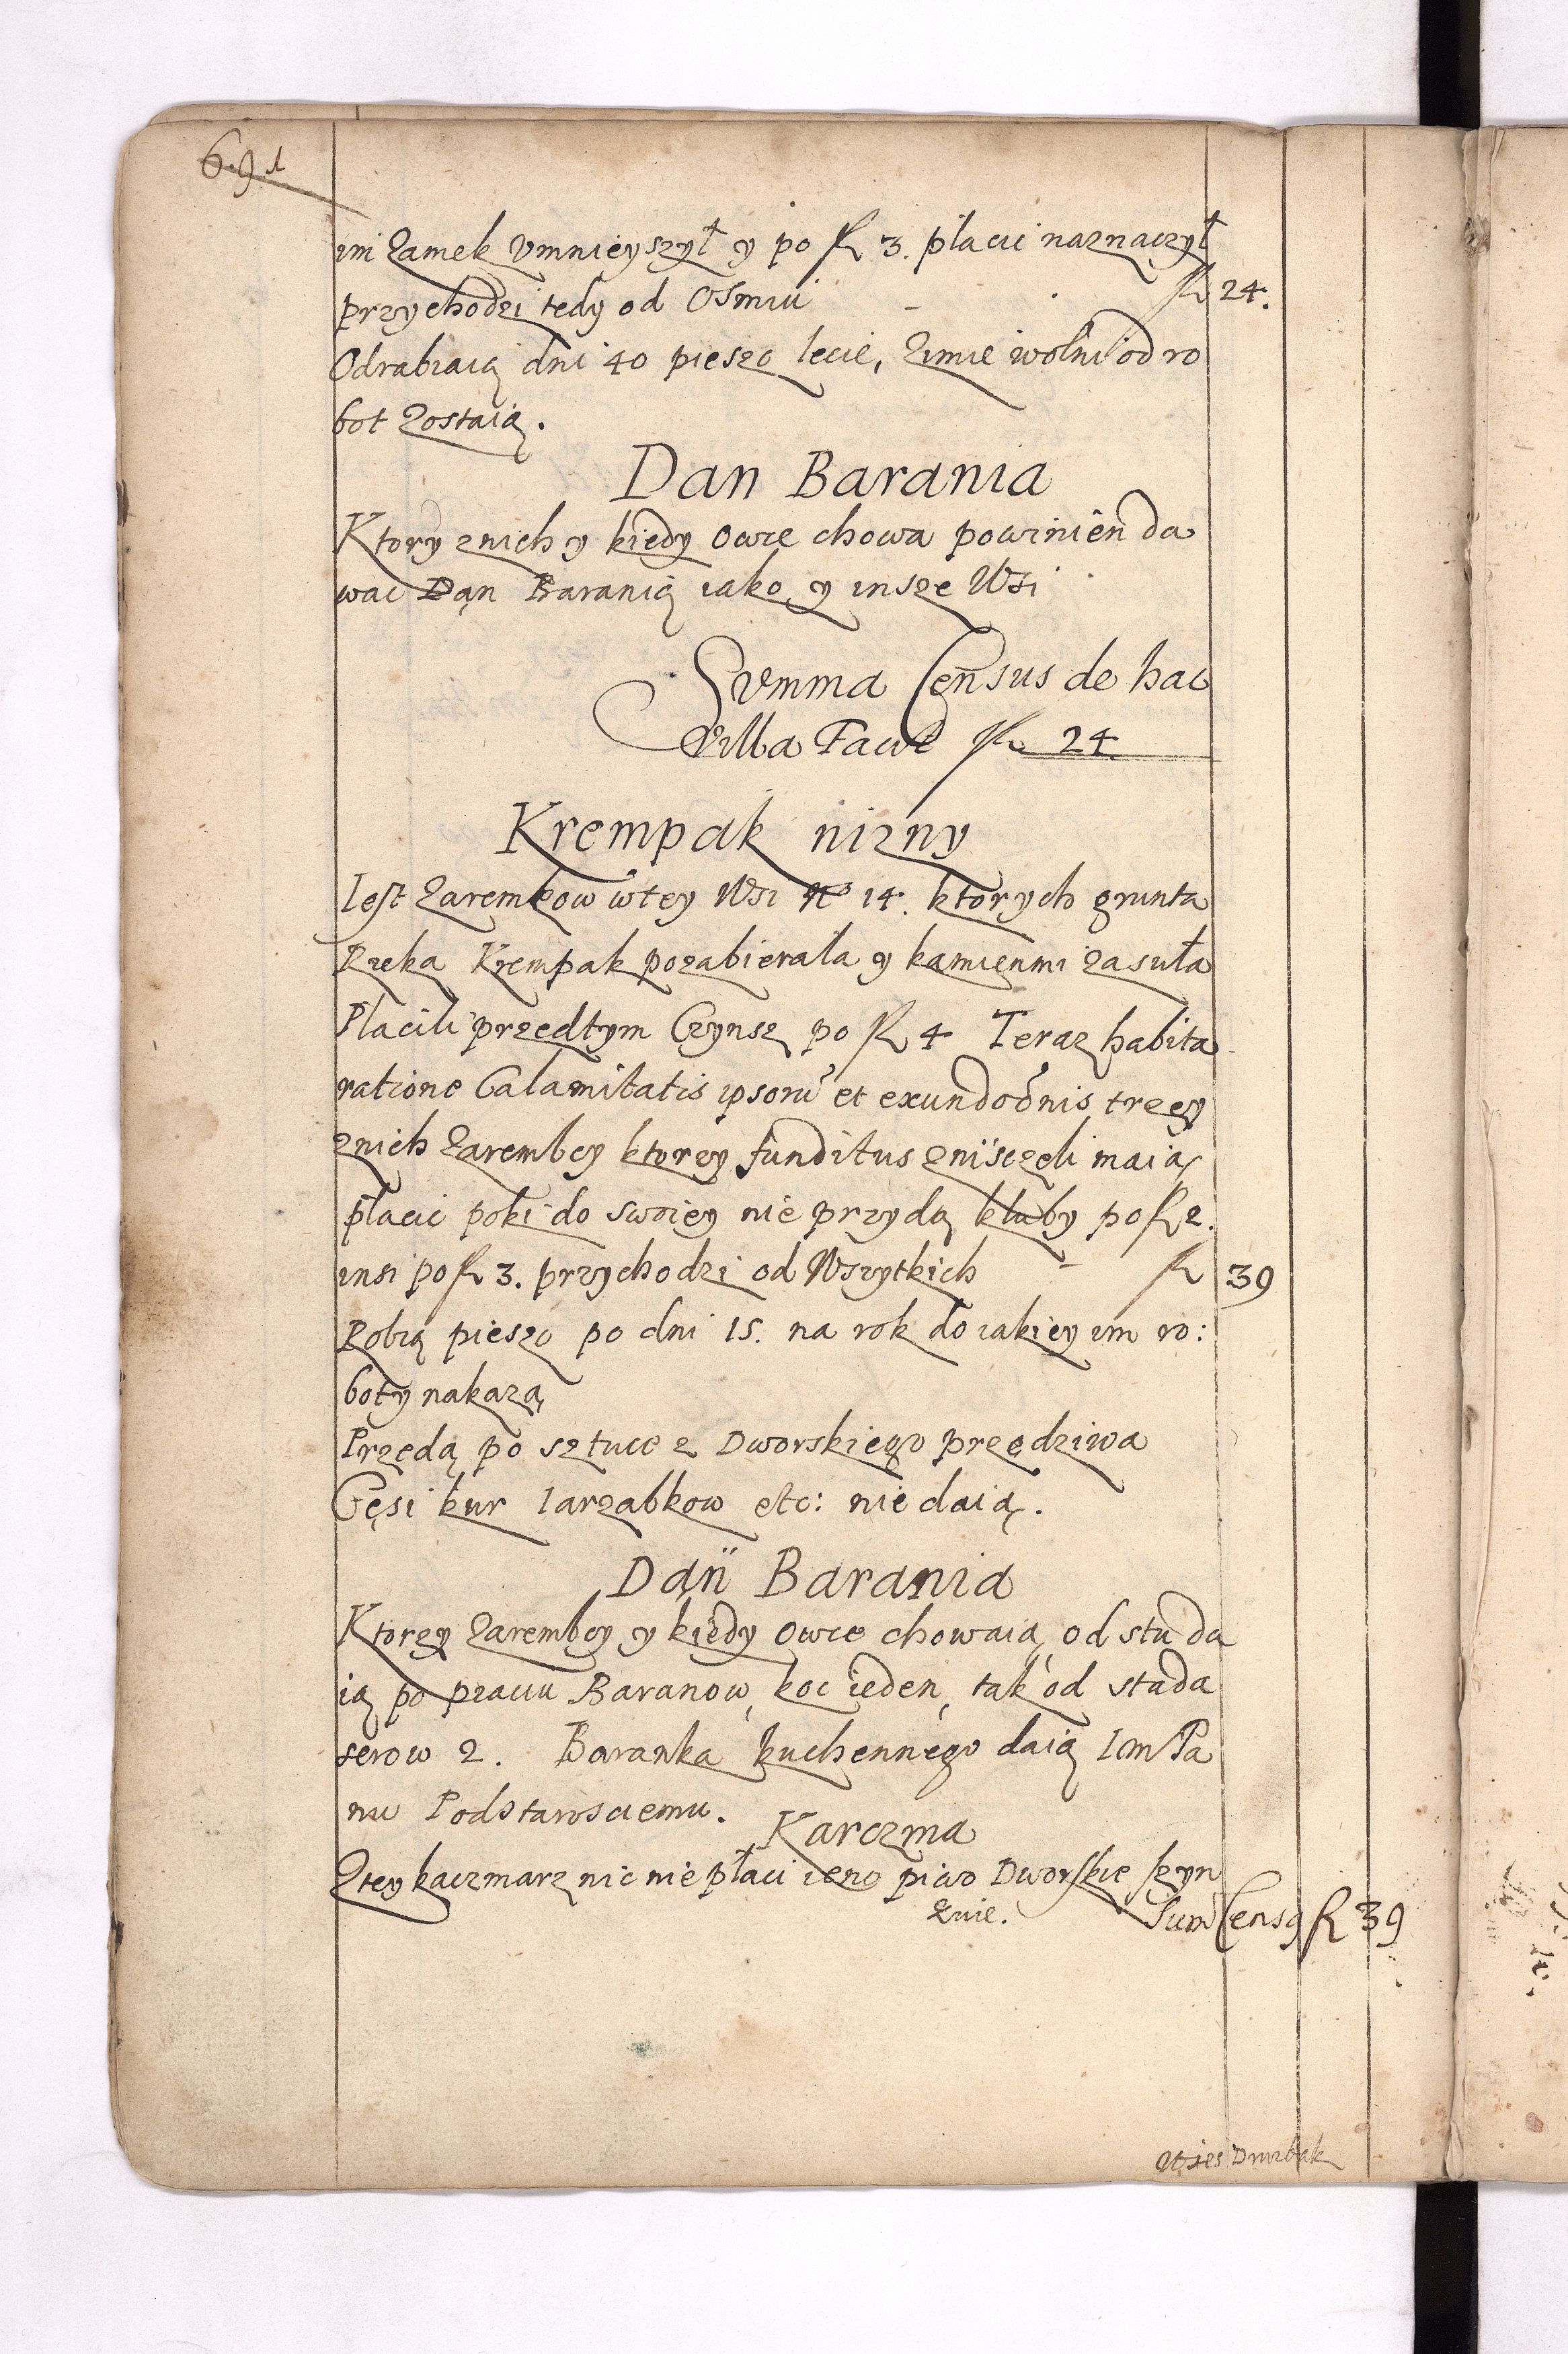 691
im Zamek Vmnieyszył y po fl 3. płacic naznaczył
przychodzi tedy od Osmiu - fl 24.
Odrabiaią dni 40 pieszo lecie, Zimie wolni od ro
bot Zostaią.
Dan Barania
Ktory znich y kiedy owce chowa powinien da
wac Dan Baranią iako y insze Wsi
Summa Census de hac
Villa Facit fl 24
Krempak nizny
Iest Zarembkow wtey Wsi No 14. ktorych grunta
Rzeka Krempak pozabierała y kamienmi zasuła
Płacili przedtym Czynsz po fl 4 Teraz habita
ratione Calamitatis ipsoru et exundaonis trzey
znich Zarembcy ktorzy funditus znisczeli maią
płacic poki do swoiey nie przydą kluby po fl 2.
insi po fl 3. przychodzi od Wszytkich - fl 39
Robią pieszo po dni 15. na rok do iakiey im ro:
boty nakazą
Przędą po sztuce z Dworskiego przędziwa
Gęsi kur Iarząbkow etc: nie daią.
Dań Barania
Ktorzy Zarembcy y kiedy owce chowaią, od stu da
ią po pzaciu Baranow, koc ieden, tak od stada
serow 2. Baranka kuchennego daią Im Pa
nu Podstarosciemu.
Karczma
Ztey kaczmarz nic nie płaci ieno piwo Dworskie szyn
kuie. Sum Census fl 39
Wies Durstak